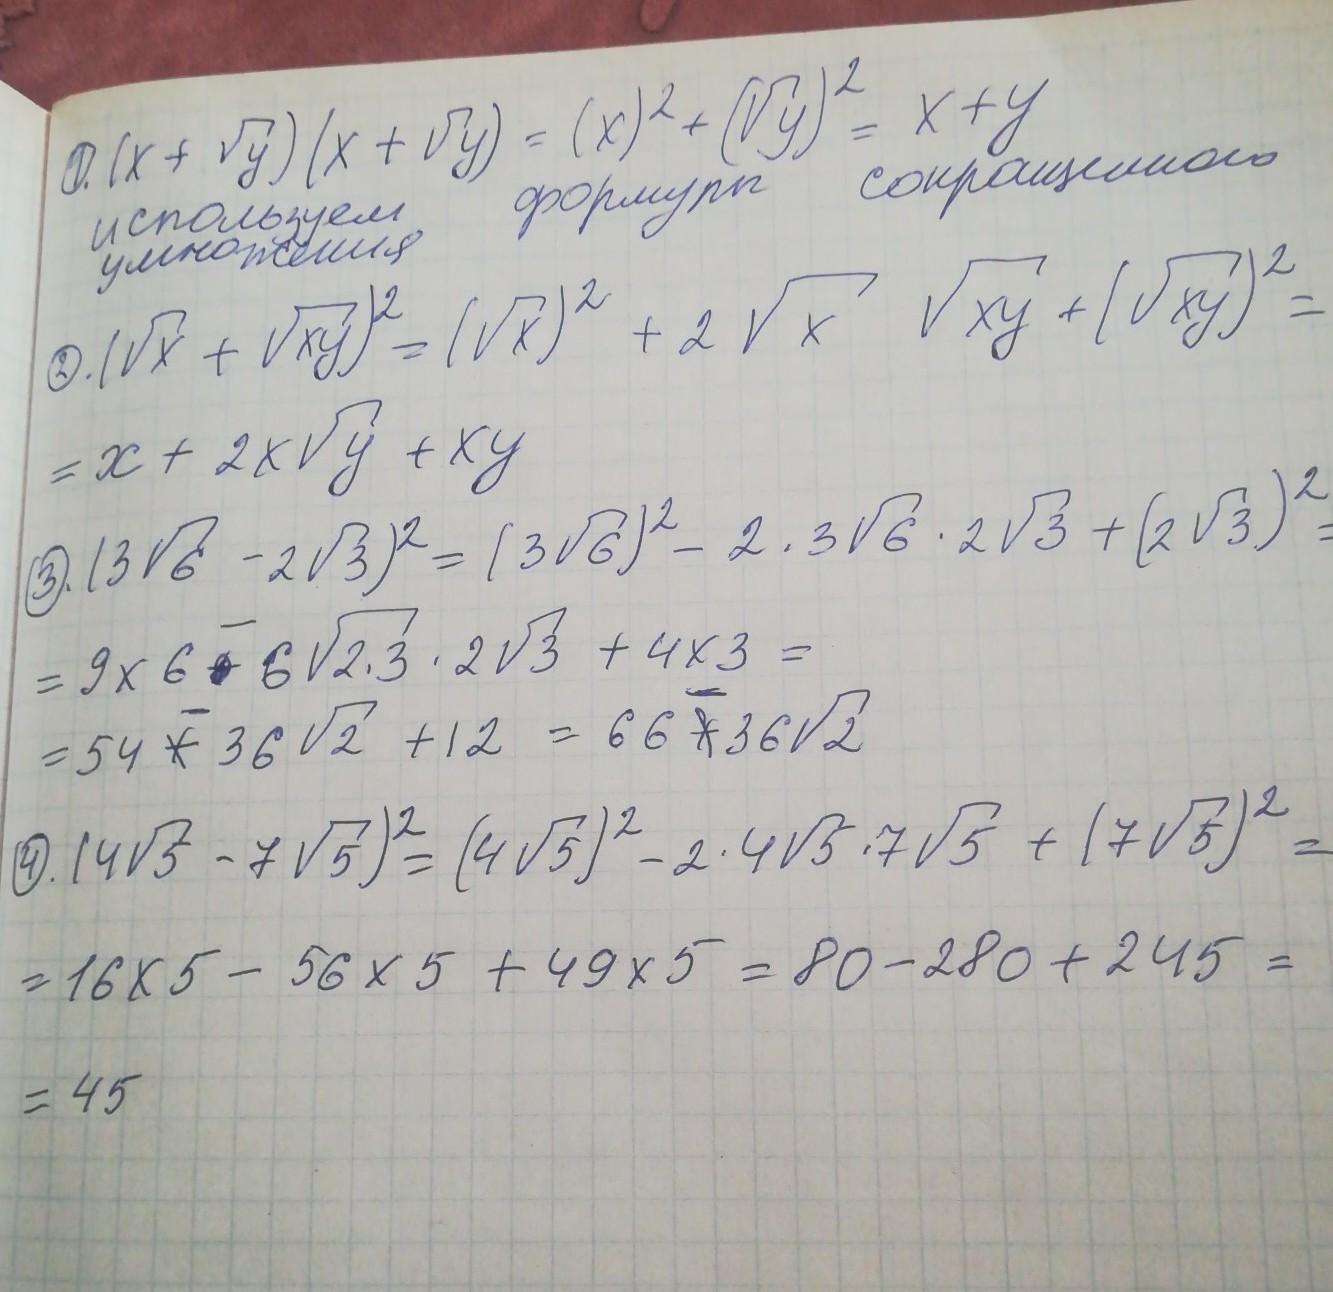 1. (x + √y)(x + √y) = (x)² + (√y)² = x + y
используем формулы сокращенного
умножения
2. (√x + √xy)² = (√x)² + 2 √x √xy + (√xy)² =
= x + 2x√y + xy
3. (3√6 - 2√3)² = (3√6)² - 2 · 3√6 · 2√3 + (2√3)² =
= 9 x 6 - 6√2·3 · 2√3 + 4 x 3 =
= 54 - 36√2 + 12 = 66 - 36√2
4. (4√5 - 7√5)² = (4√5)² - 2 · 4√5 · 7√5 + (7√5)² =
= 16 x 5 - 56 x 5 + 49 x 5 = 80 - 280 + 245 =
= 45